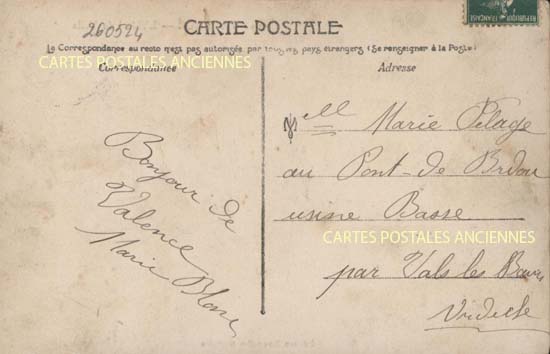 260524
CARTE POSTALE
RÉPUBLIQUE FRANÇAISE
La Correspondance au recto n'est pas autorisée par tous les pays étrangers (Se renseigner à la Poste)
CARTES POSTALES ANCIENNES
Correspondance
Adresse
Bonjour de
Valence
Marie Blanc
Mell Marie Pélage
au Pont-de
usine Basse
CARTES POSTALES ANCIENNES
par Vals les Bains
Ardèche